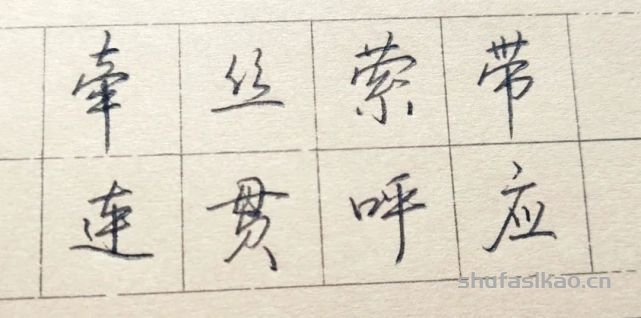 牵丝萦带
连贯呼应
shufasikao.cn